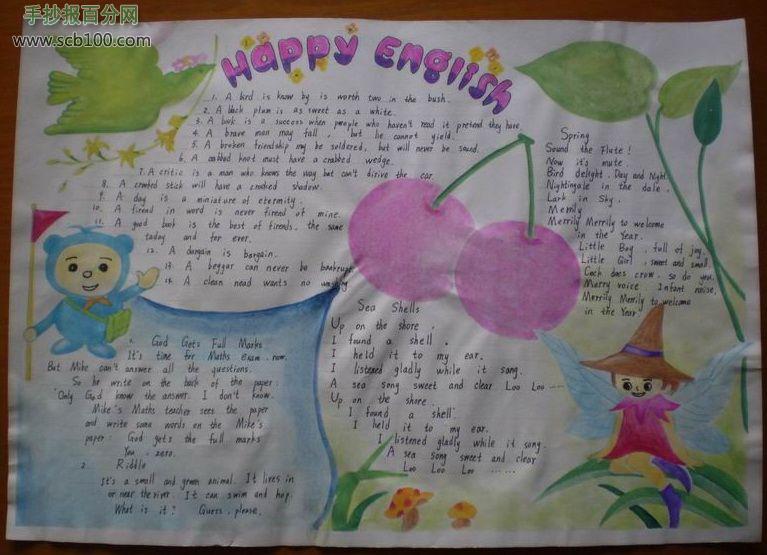 手抄报百分网
www.scb100.com
Happy English
1. A bird is know by is worth two in the bush.
2. A black plum is as sweet as a white.
3. A book is a success when people who haven't read it pretend they have
4. A brave man may fall, but he cannot yield.
5. A broken friendship may be soldered, but will never be sound.
6. A crabbed knot must have a crabbed wedge.
7. A critic is a man who knows the way but can't dirive the car
8. A crooked stick will have a crooked shadow.
9. A day is a miniature of eternity.
10. A firend in word is never firend of mine.
11. A good book is the best of firends, the same
today and for ever.
12. A dargain is bargain.
13. A beggar can never be bankrupt
14. A clean head wants no
Spring
Sound the Flute!
Now it's mute.
Bird delight. Day and Night.
Nightingale in the dale.
Lark in Sky.
Merrily
Merrily Merrily to welcome
in the Year.
Little Boy. full of joy.
Little Girl. sweet and small.
Cock does crow. so do you.
Merry voice. Infant noise.
Merrily Merrily to welcome
in the Year
1. God Gets Full Marks
It's time for Maths exam now.
But Mike can't answer all the questions.
So he write on the back of the paper:
"Only God know the answer. I don't know.
Mike's Maths teacher sees the paper
and write some words on the Mike's
paper: God gets the full marks
You, zero.
2 Riddle
It's a small and green animal. It lives in
or near the river. It can swim and hop.
What is it? Guess, please.
Sea Shells
Up on the shore.
I found a shell.
I held it to my ear.
I listened gladly while it song.
A sea song sweet and clear Loo Loo ……
Up on the shore.
I found a shell.
I held it to my ear.
I listened gladly while it song.
A sea song sweet and clear
Loo Loo Loo ……